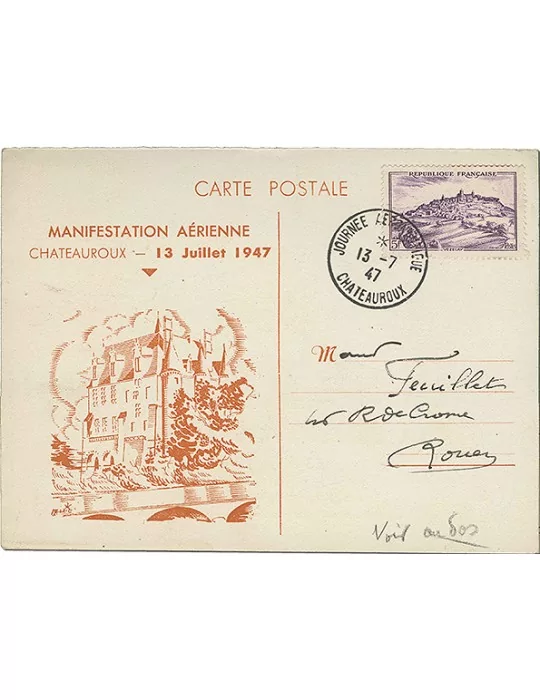 CARTE POSTALE
MANIFESTATION AÉRIENNE
CHATEAUROUX — 13 Juillet 1947
RÉPUBLIQUE FRANÇAISE
5F
JOURNEE AERONAUTIQUE
13 - 7
47
CHATEAUROUX
M
Feuillet
R. de Crosne
Rouen
Voir au dos